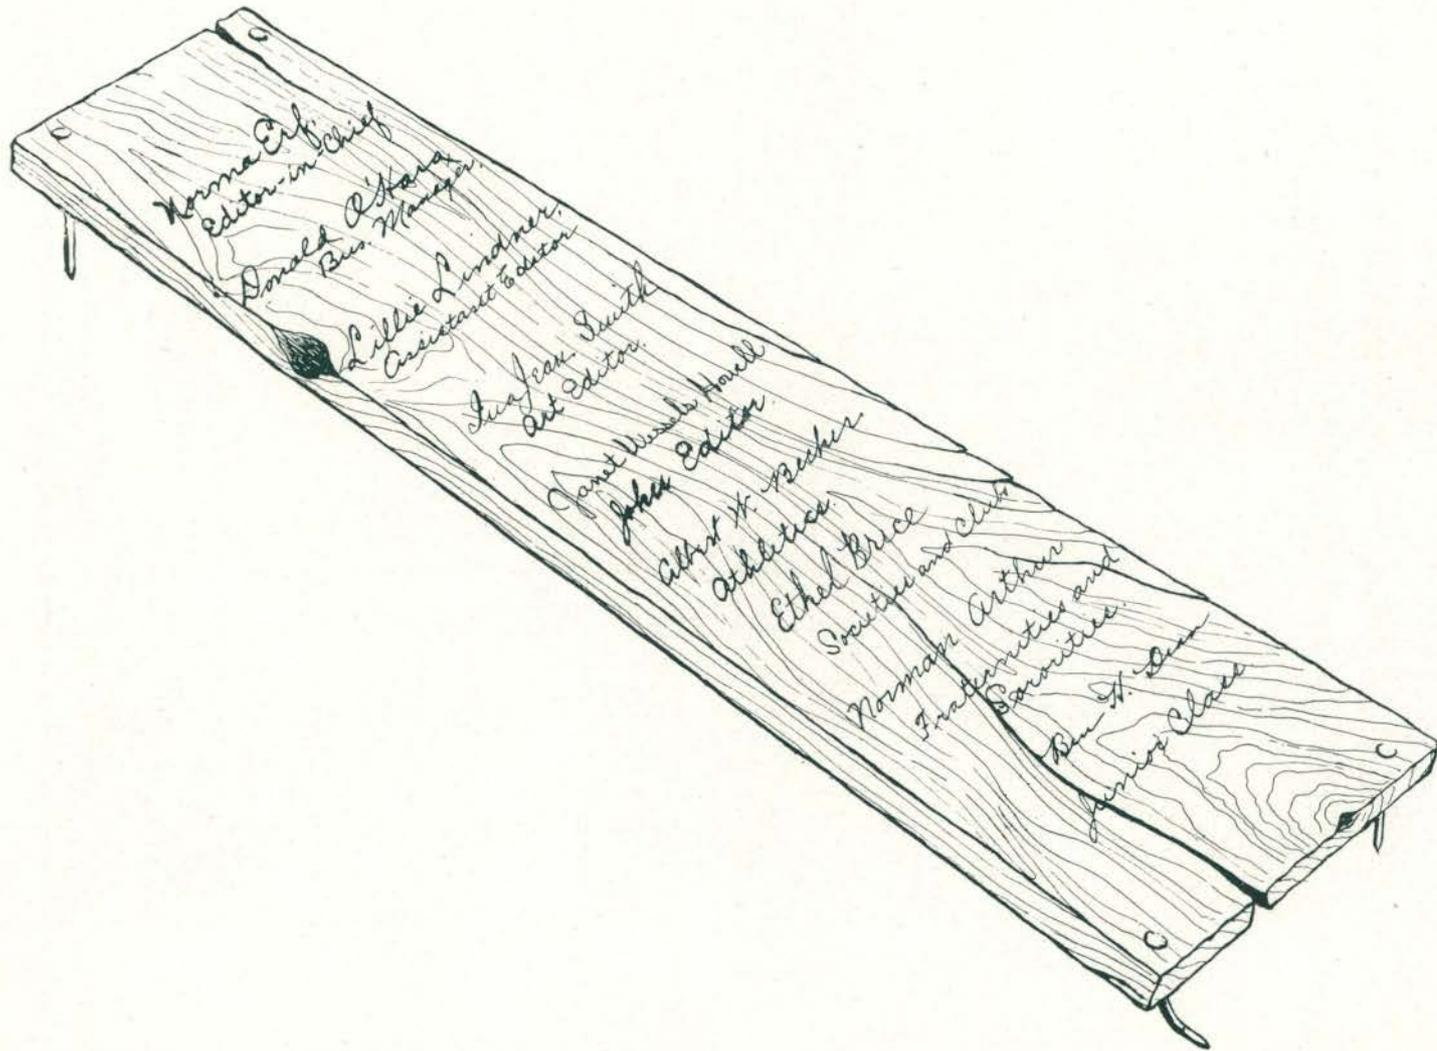 Norma Erf.
Editor-in-Chief
Donald O'Hara,
Bus. Manager.
Lillie Lindner,
Assistant Editor
Iva Jean Smith
Art Editor.
Janet Wessels Howell
Joke Editor
Albert W. Becker.
Athletics.
Ethel Brice
Societies and Clubs
Norman Arthur
Fraternities and
Sororities.
Ben H. Dean
Junior Class